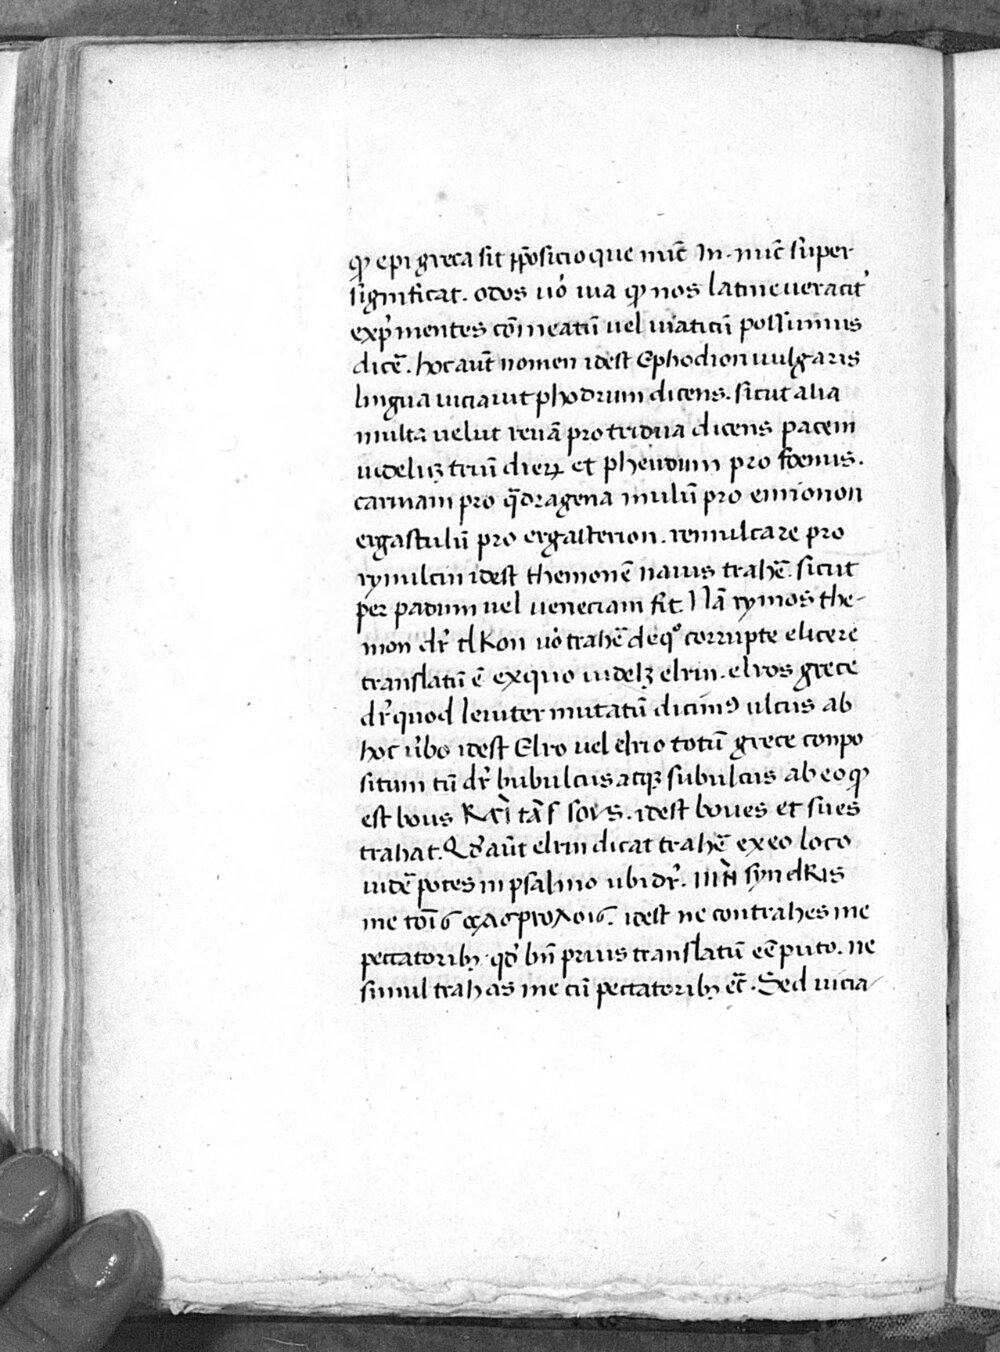 qͥ epi greca sit p̄posicio que nūc In. nūc super
significat. odos uo᷒ uia qͥ nos latine ueracit᷒
exp᷒mentes cōmeatū uel uiaticū possumus
dicē. hoc aut̄ nomen idest Ephodion uulgaris
lingua uiciauit phodrum dicens. sicut alia
multa uelut reuā pro tridua dicens pacem
uideliꝫ triū dieꝝ et pheudum pro foenus.
carinam pro q̄dragena mulū pro emionon
ergastulū pro ergasterion. remulcare pro
rymulcin idest themonē nauis trahē. sicut
per padum uel ueneciam fit. Nā rymos the-
mon dr̄ elkon uo᷒ trahē de qͦ corrupte elicere
translatū ē ex quo uidelꝫ elrin. elros grece
dr̄ quod leuiter mutatū dicimꝰ ulcus ab
hoc u᷒bo idest Elro uel elrio totū grece conpo
situm tū dr̄ bubulcus atqꝫ subulcus ab eo qͥ
est bous Kai tas sous. idest boues et sues
trahat. Qd᷒ aut̄ elrin dicat trahē ex eo loco
uidē potes in psalmo ubi dr̄. miN syn elKis
me toīs amartolois. idest ne contrahes me
peccatoribꝫ. qd᷒ bn̄ prius translatū eē puto. ne
simul trahas me cū peccatoribꝫ ec̄. Sed uicia